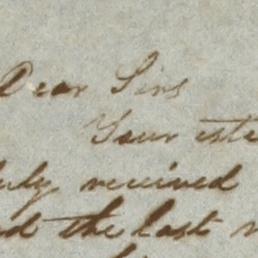 Dear Sirs
Your este
uly received
nd the last